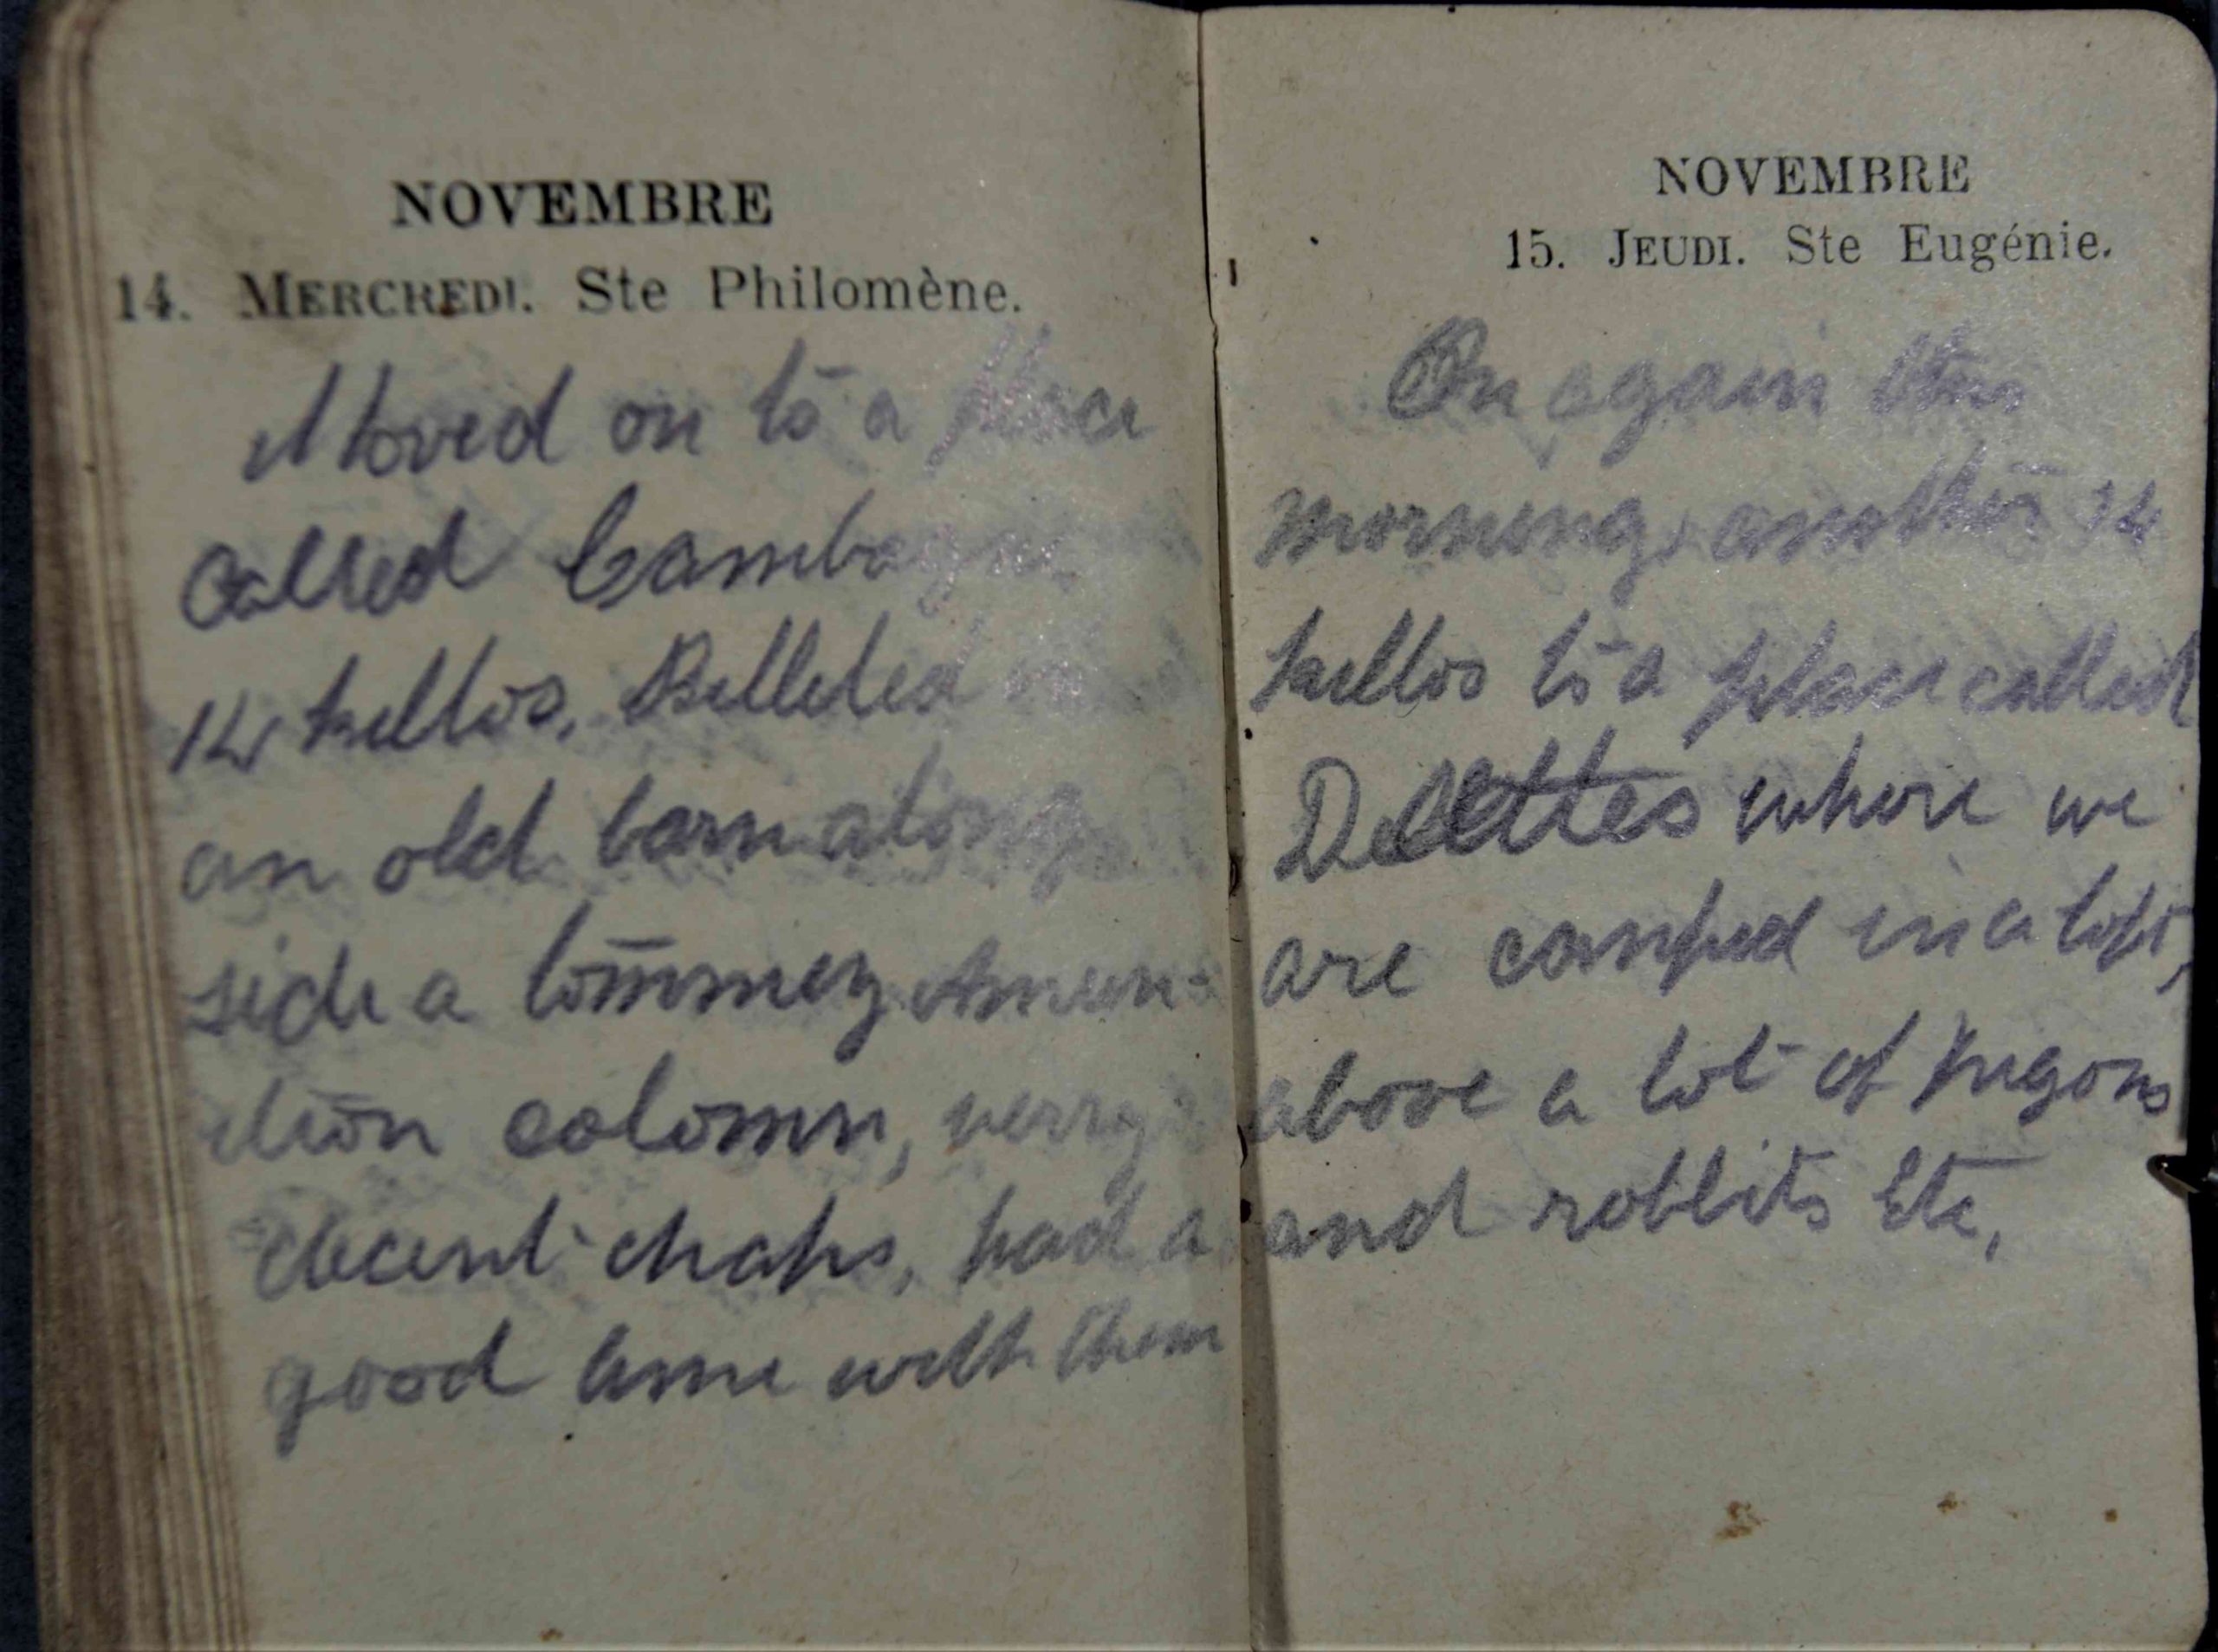 NOVEMBRE
14. MERCREDI. Ste Philomène.
Moved on to a place
called Cambagne
14 killos, Billeted in
an old barn along
side a tommey Amun-
ition colomn, verry
decent chaps, had a
good time with them
NOVEMBRE
15. JEUDI. Ste Eugénie.
On again this
morning, another 14
killos to a place called
Delettes where we
are camped in a loft,
above a lot of pigons
and rabbits Etc,